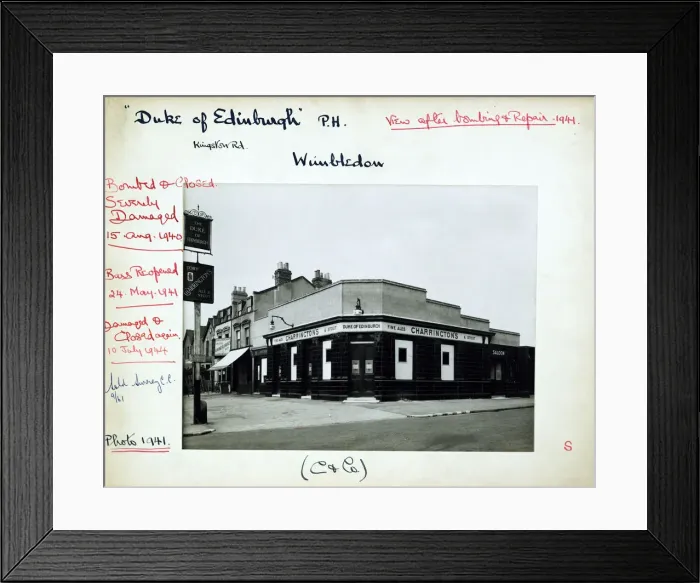 "Duke of Edinburgh" P.H.
View after bombing & Repair 1941.
Kingston Rd.
Wimbledon
Bombed & Closed.
Severely
Damaged
15 Aug. 1940
Bars Reopened
24. May. 1941
Damaged &
Closed again
10 July 1944
Sold Surrey C.C.
9/61
Photo 1941.
THE
DUKE
OF
EDINBURGH
CHARRINGTONS
CHARRINGTONS
& STOUT
DUKE OF EDINBURGH
FINE ALES CHARRINGTONS & STOUT
SALOON
(C & Co)
S